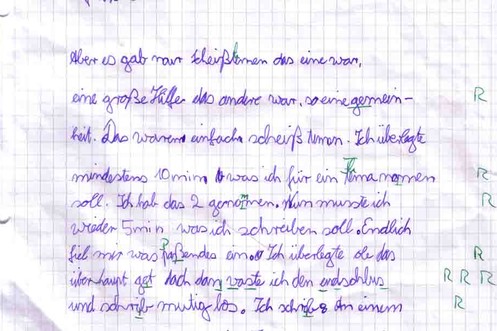 Aber es gab nur scheißtemen das eine war,
eine große Hilfe das andere war, so eine gemein- R
heit. Das waren einfach scheiß temen. Ich überlegte
mindestens 10 min was ich für ein Thema nomen R
soll. Ich hab das 2 genomen. Nun muste ich R
wieder 5 min was ich schreiben soll. Endlich
fiel mir was paßendes ein. Ich überlegte ob das R
überhaunt get doch dan vaste ich den endschlus R R R
und schrib mutig los. Ich schribs an einem R